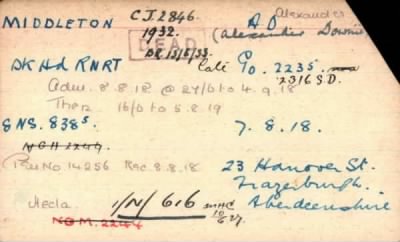 MIDDLETON C.J. 2846. A.D. Alexander
1932. (Alexander Downie)
DEAD
DR 15/5/33.
Dk Hd RNRT late Co. 2235.
2316 S.D.
Adm. 8.8.18 @ 27/0 to 4.9.18
Ther 16/0 to 5.8.19
8 NS. 838⁵. 7.8.18.
N.G.H 2249
Pen No. 14256 Rec 8.8.18 23 Hanover St.
Frazerburgh.
Hecla. 1/N/616 Aberdeenshire
N.G.M. 2244